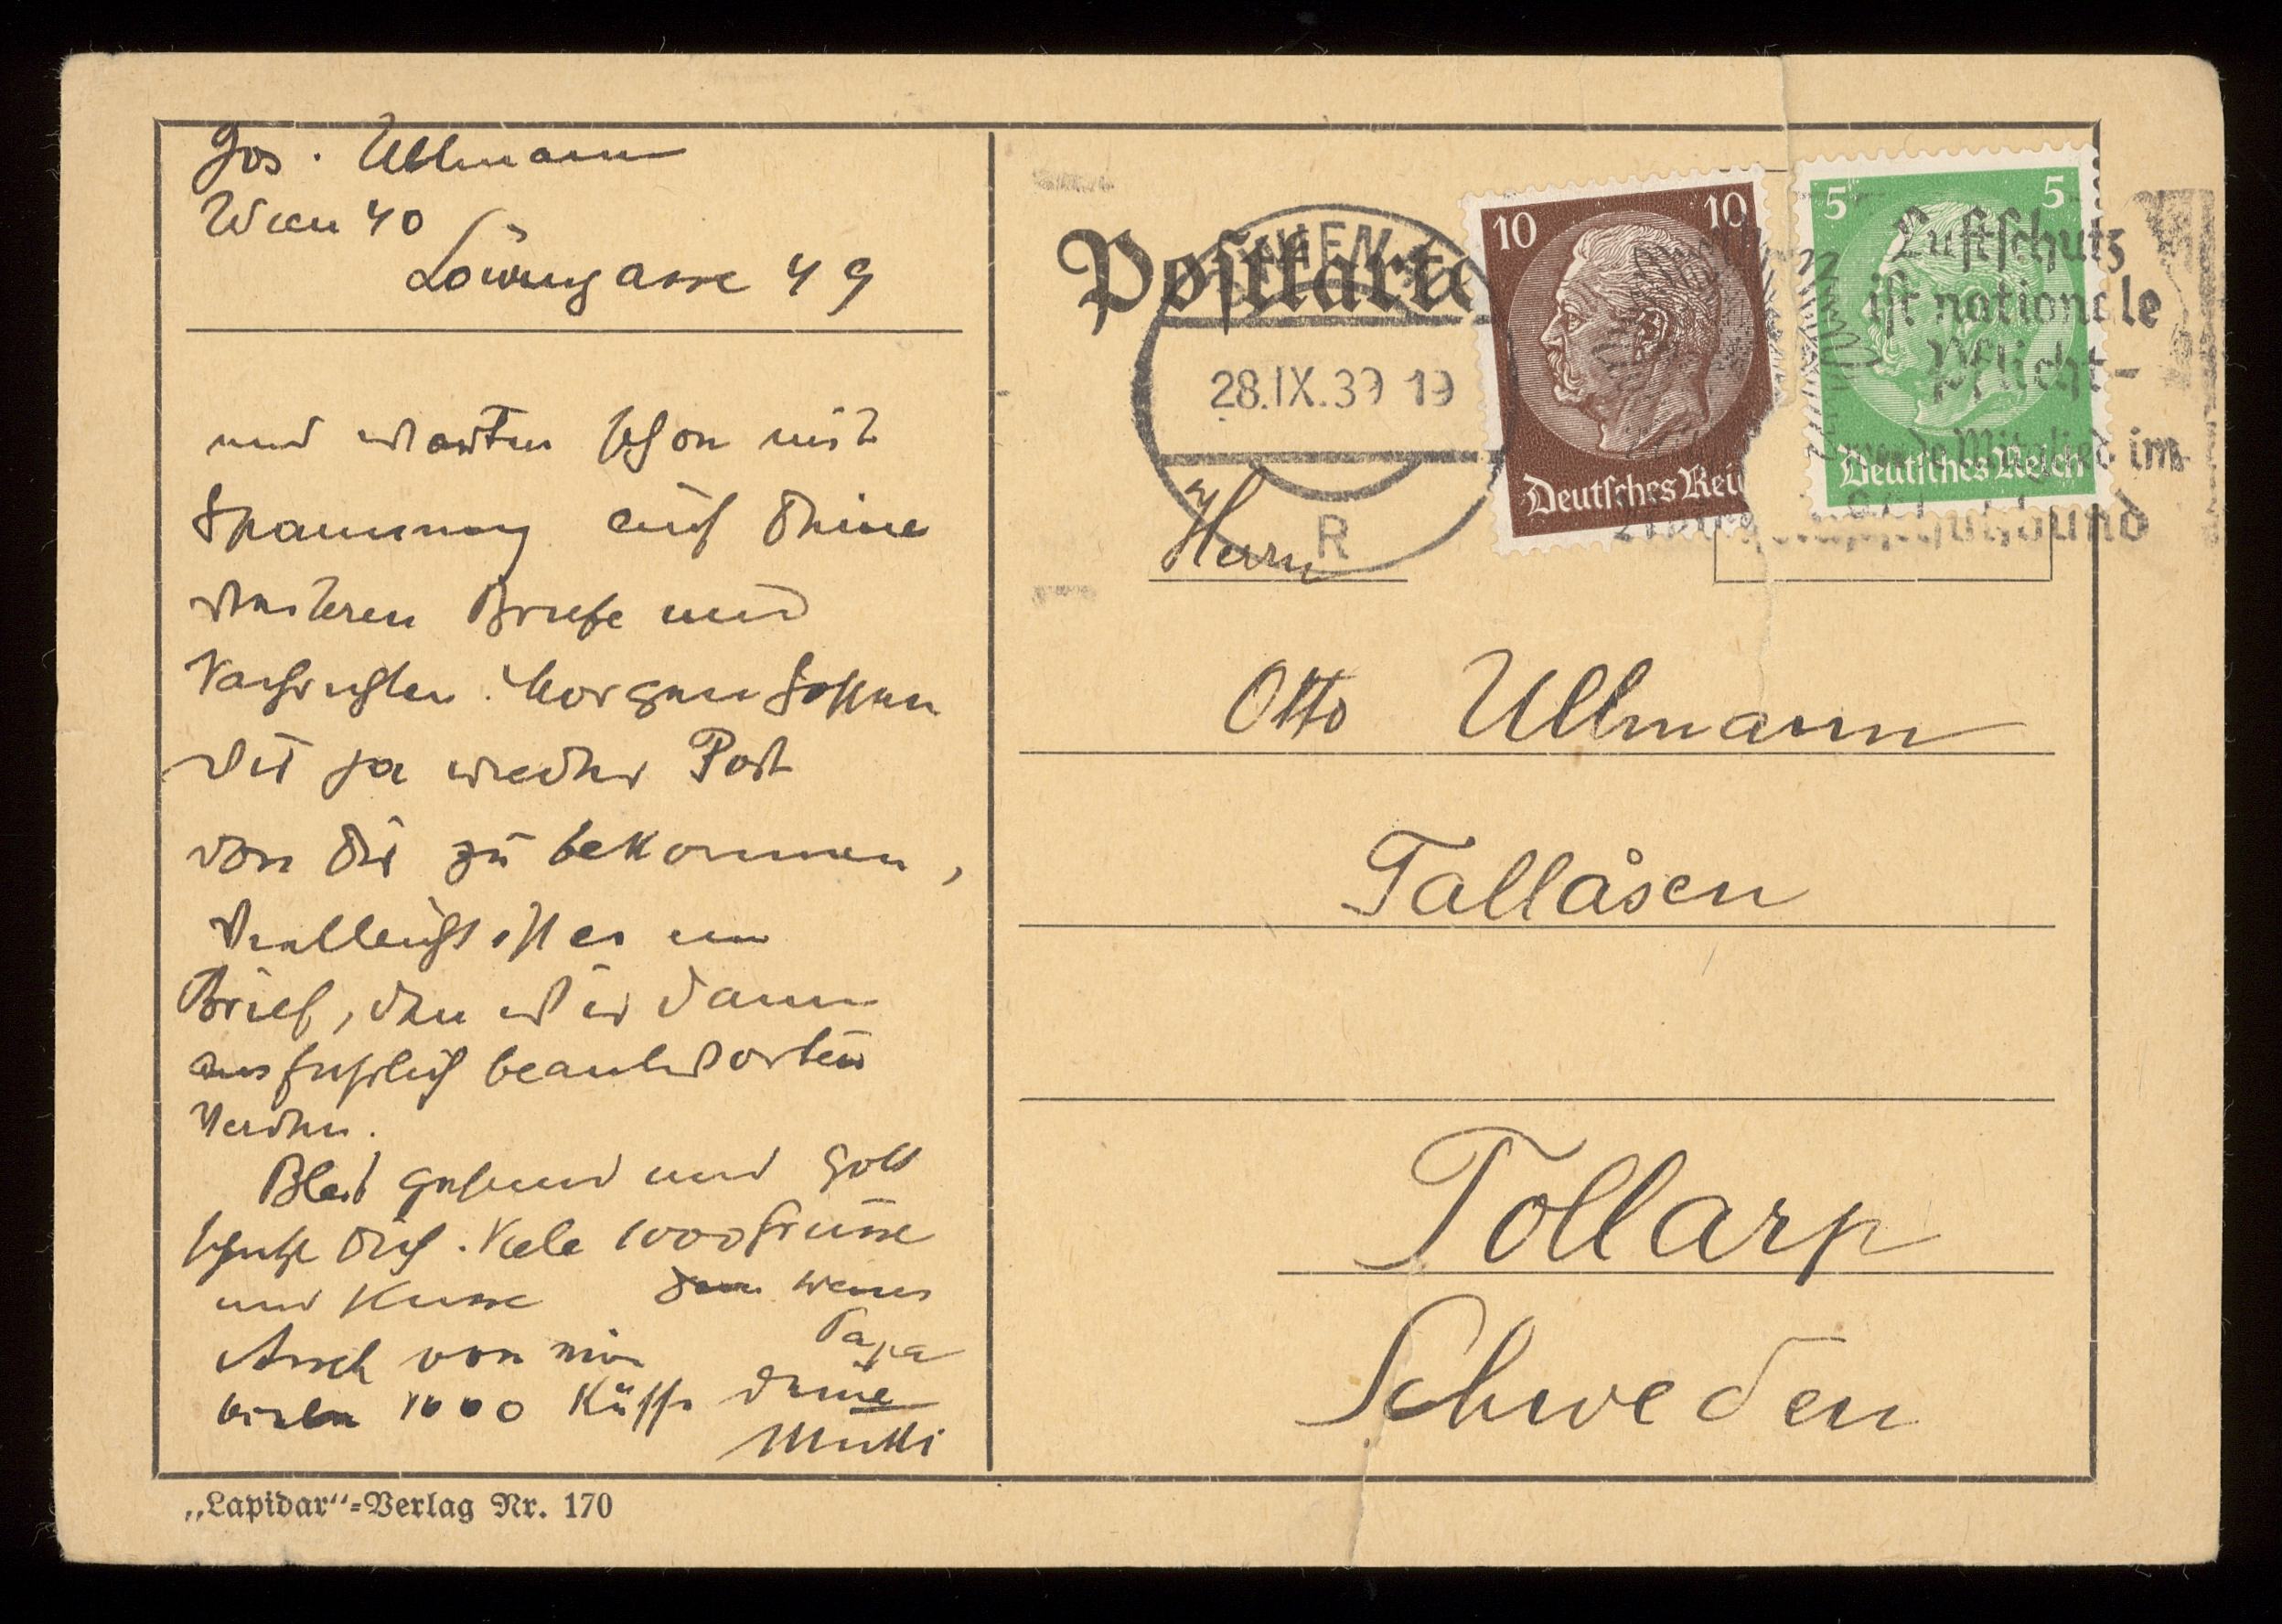 Jos. Ullmann
Wien 40
Löwengasse 49
und warten schon mit
Spannung auf Deine
weiteren Briefe und
Nachrichten. Morgen hoffen
wir ja wieder Post
von Dir zu bekommen,
Vielleicht ist es ein
Brief, den wir dann
ausfuhrlich beantworten
werden.
Bleib gesund und Gott
schutze Dich. Viele 1000 Grüsse
und Kusse
Papa
Auch von mir
vielen 1000 Küsse Deine
Mutti
„Lapidar“-Verlag Nr. 170
Postkarte
WIEN
28.IX.39 19
R
10 10
Deutsches Reich
5 5
Deutsches Reich
Luftschutz
ist nationale
Pflicht-
werde Mitglied im
Reichsluftschutzbund
Herrn
Otto Ullmann
Tallåsen
Tollarp
Schweden